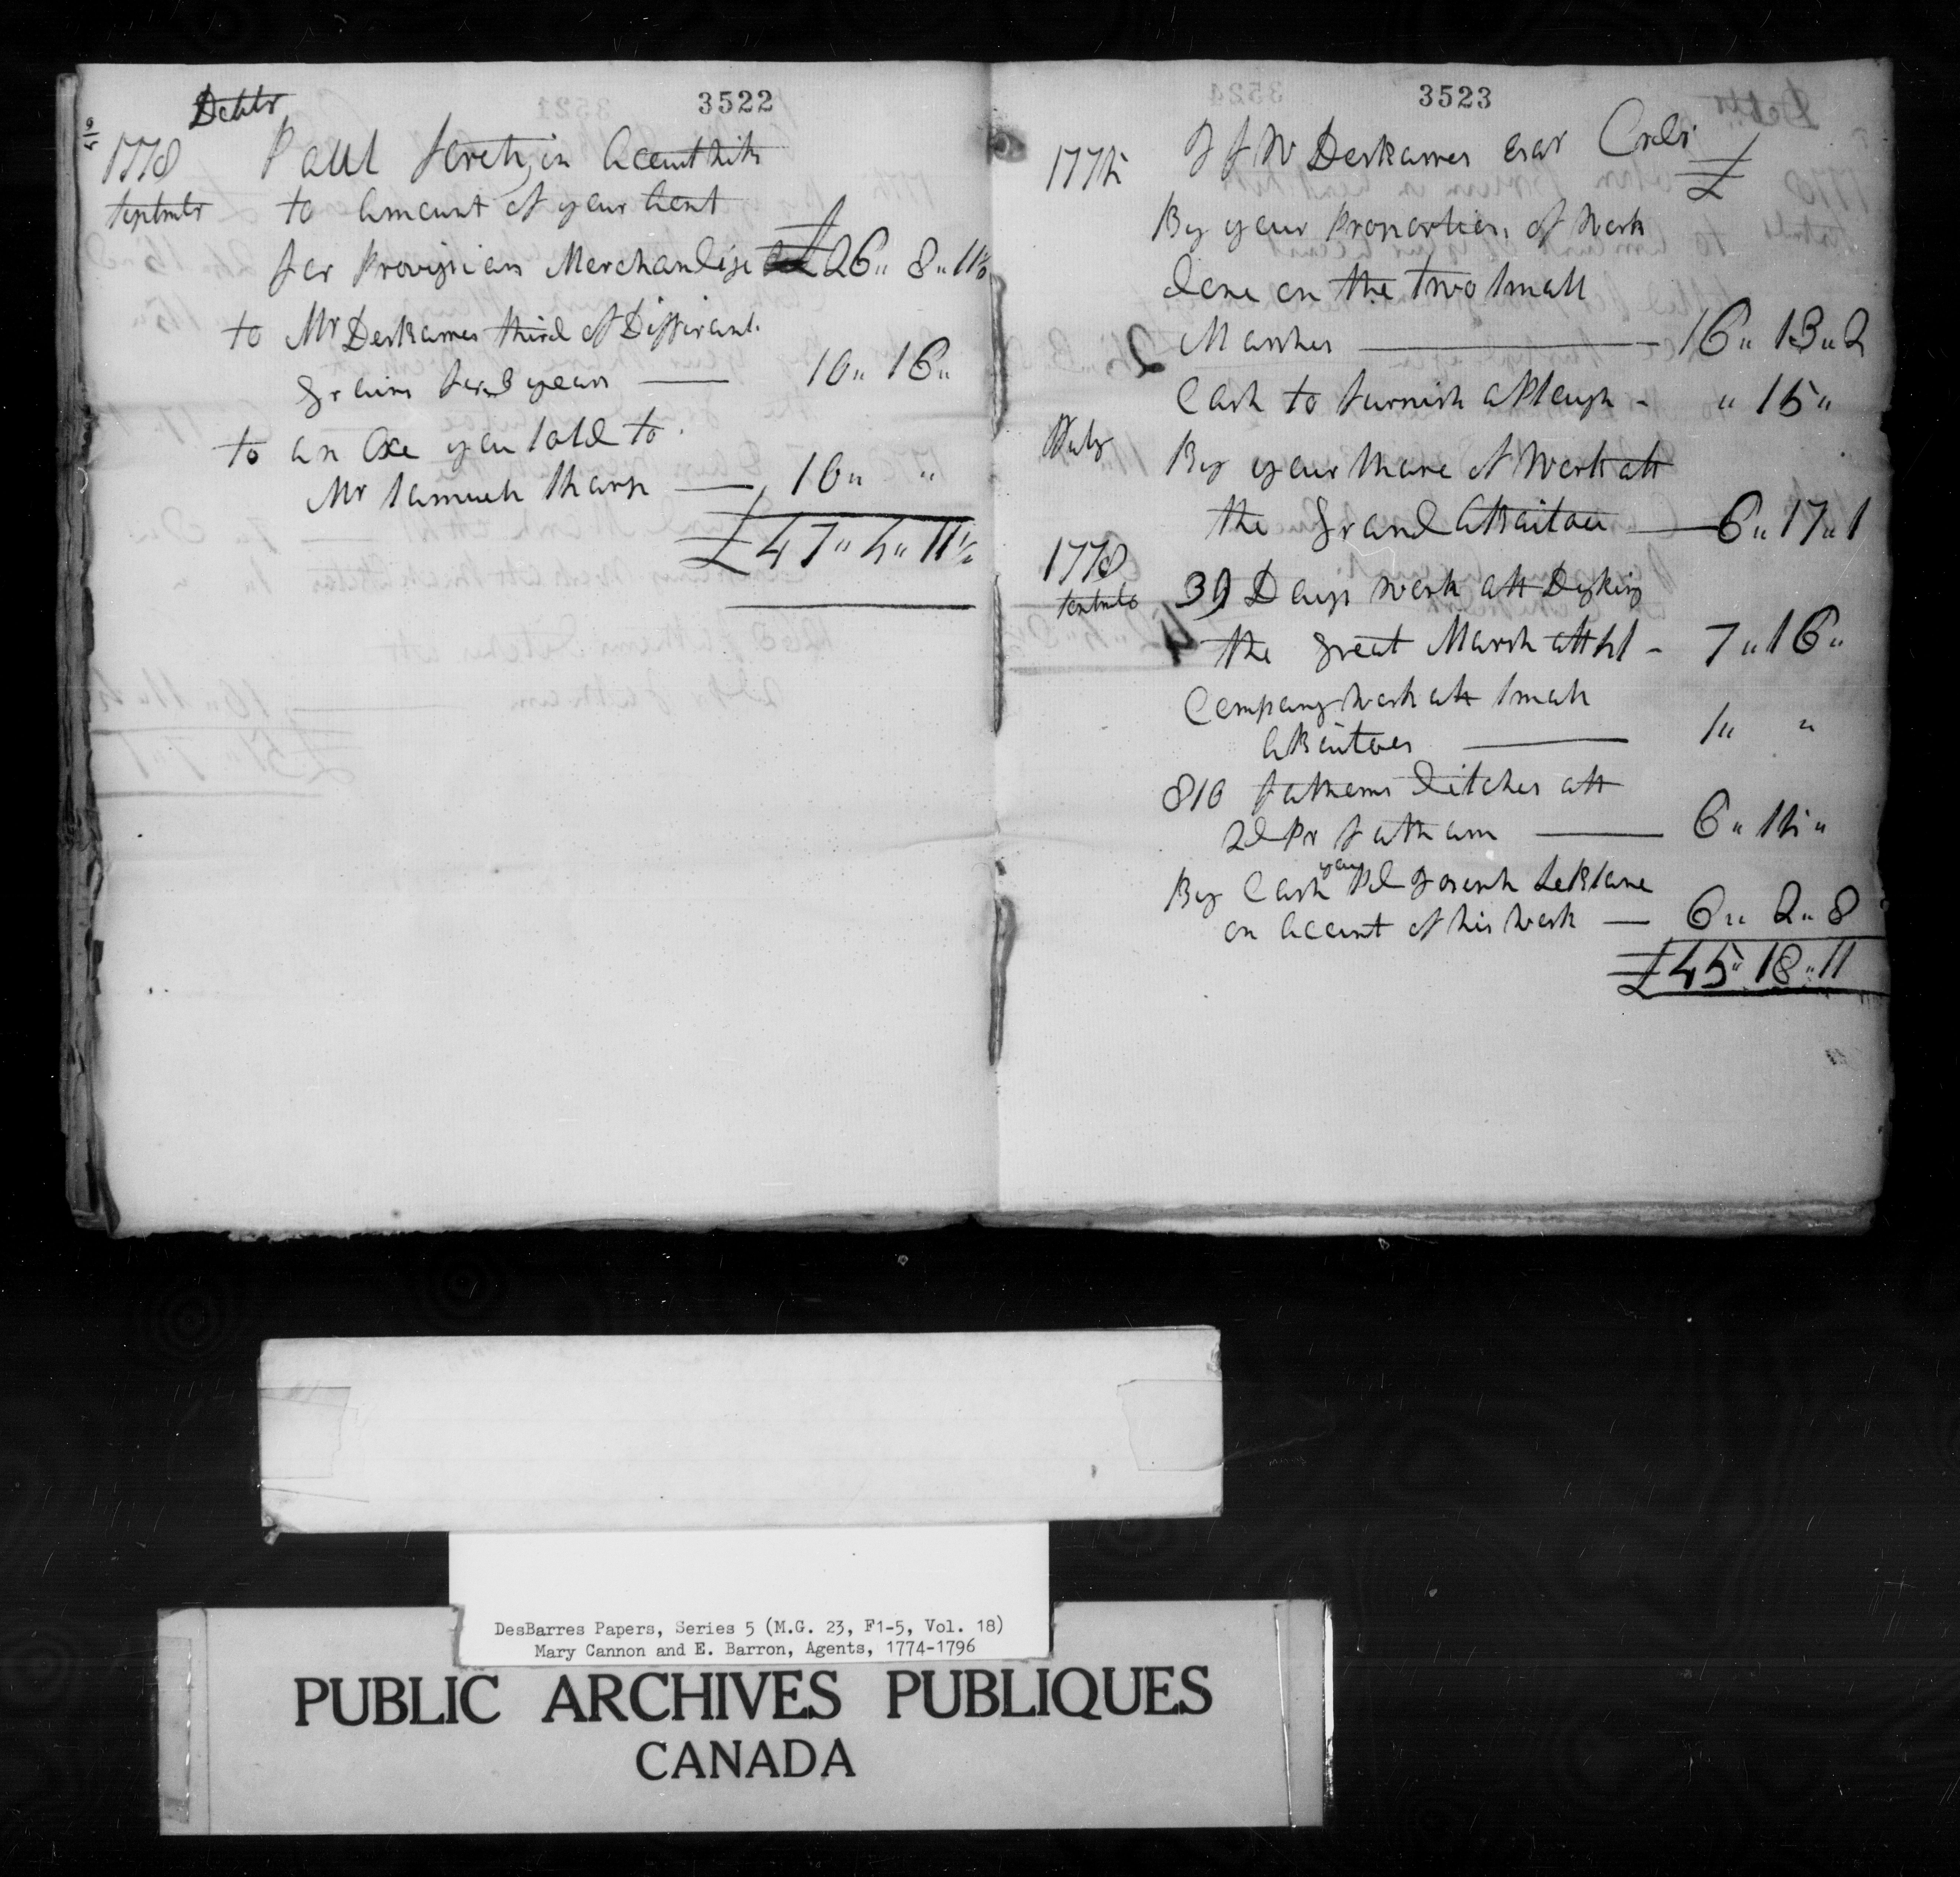 3522
Debtr
1778 Paul foretz in Account with
September to Amount of your Acont
for Provizians Merchandize £26" 8" 11½
to Mr DesBarres third of Differant
Grains for 3 years — 10" 16"
to an Oxe you sold to
Mr Samuel Sharp — 10" "
£47" 4" 11½
3523
1774 J f W DesBarres Esqr Credr
£
By your Proportion of Work
done on the two small
Marshes — 16" 13" 2
Cash to furnish a Plough - " 15"
July By your share of Work att
the Grand Abaitoue — 6" 17" 1
1778
September 39 Days work att Dyking
the great Marsh att 4s - 7" 16"
Company work att small
Abaitoes — 1" "
810 fathoms ditches att
2d Pr fatham — 6" 15"
By Cash you Pd Joseph LeBlanc
on Account of his work — 6" 2" 8
£45" 18" 11
DesBarres Papers, Series 5 (M.G. 23, F1-5, Vol. 18)
Mary Cannon and E. Barron, Agents, 1774-1796
PUBLIC ARCHIVES PUBLIQUES
CANADA